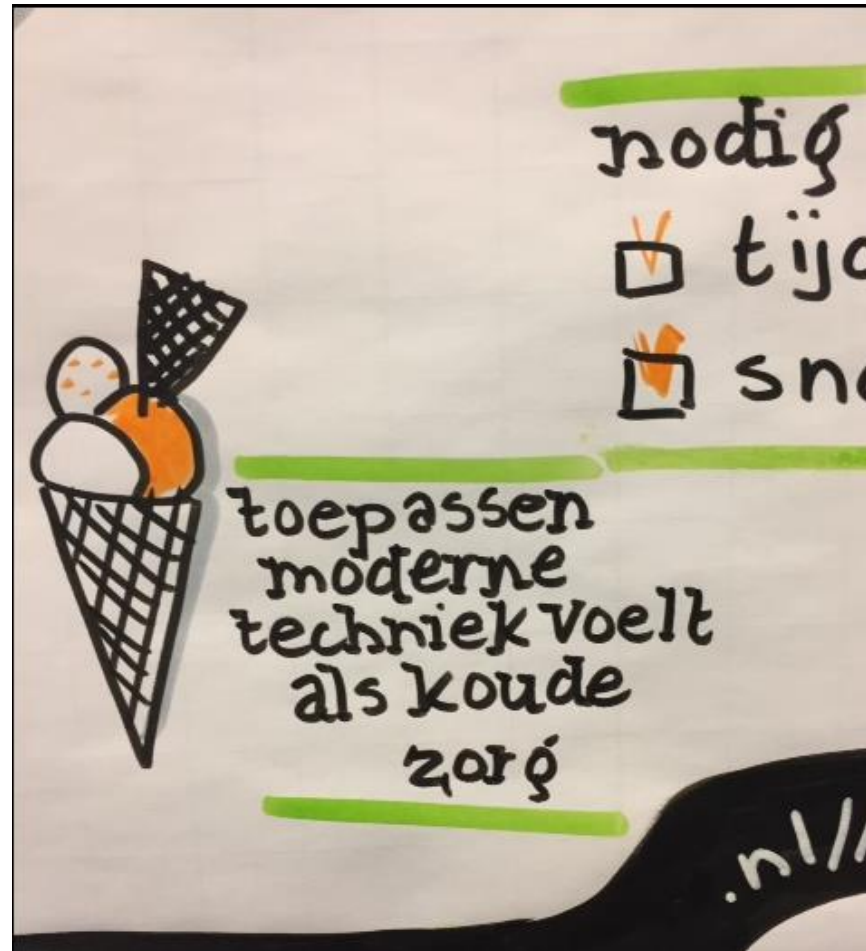 nodig
toepassen
moderne
techniek voelt
als koude
zorg
.nl//